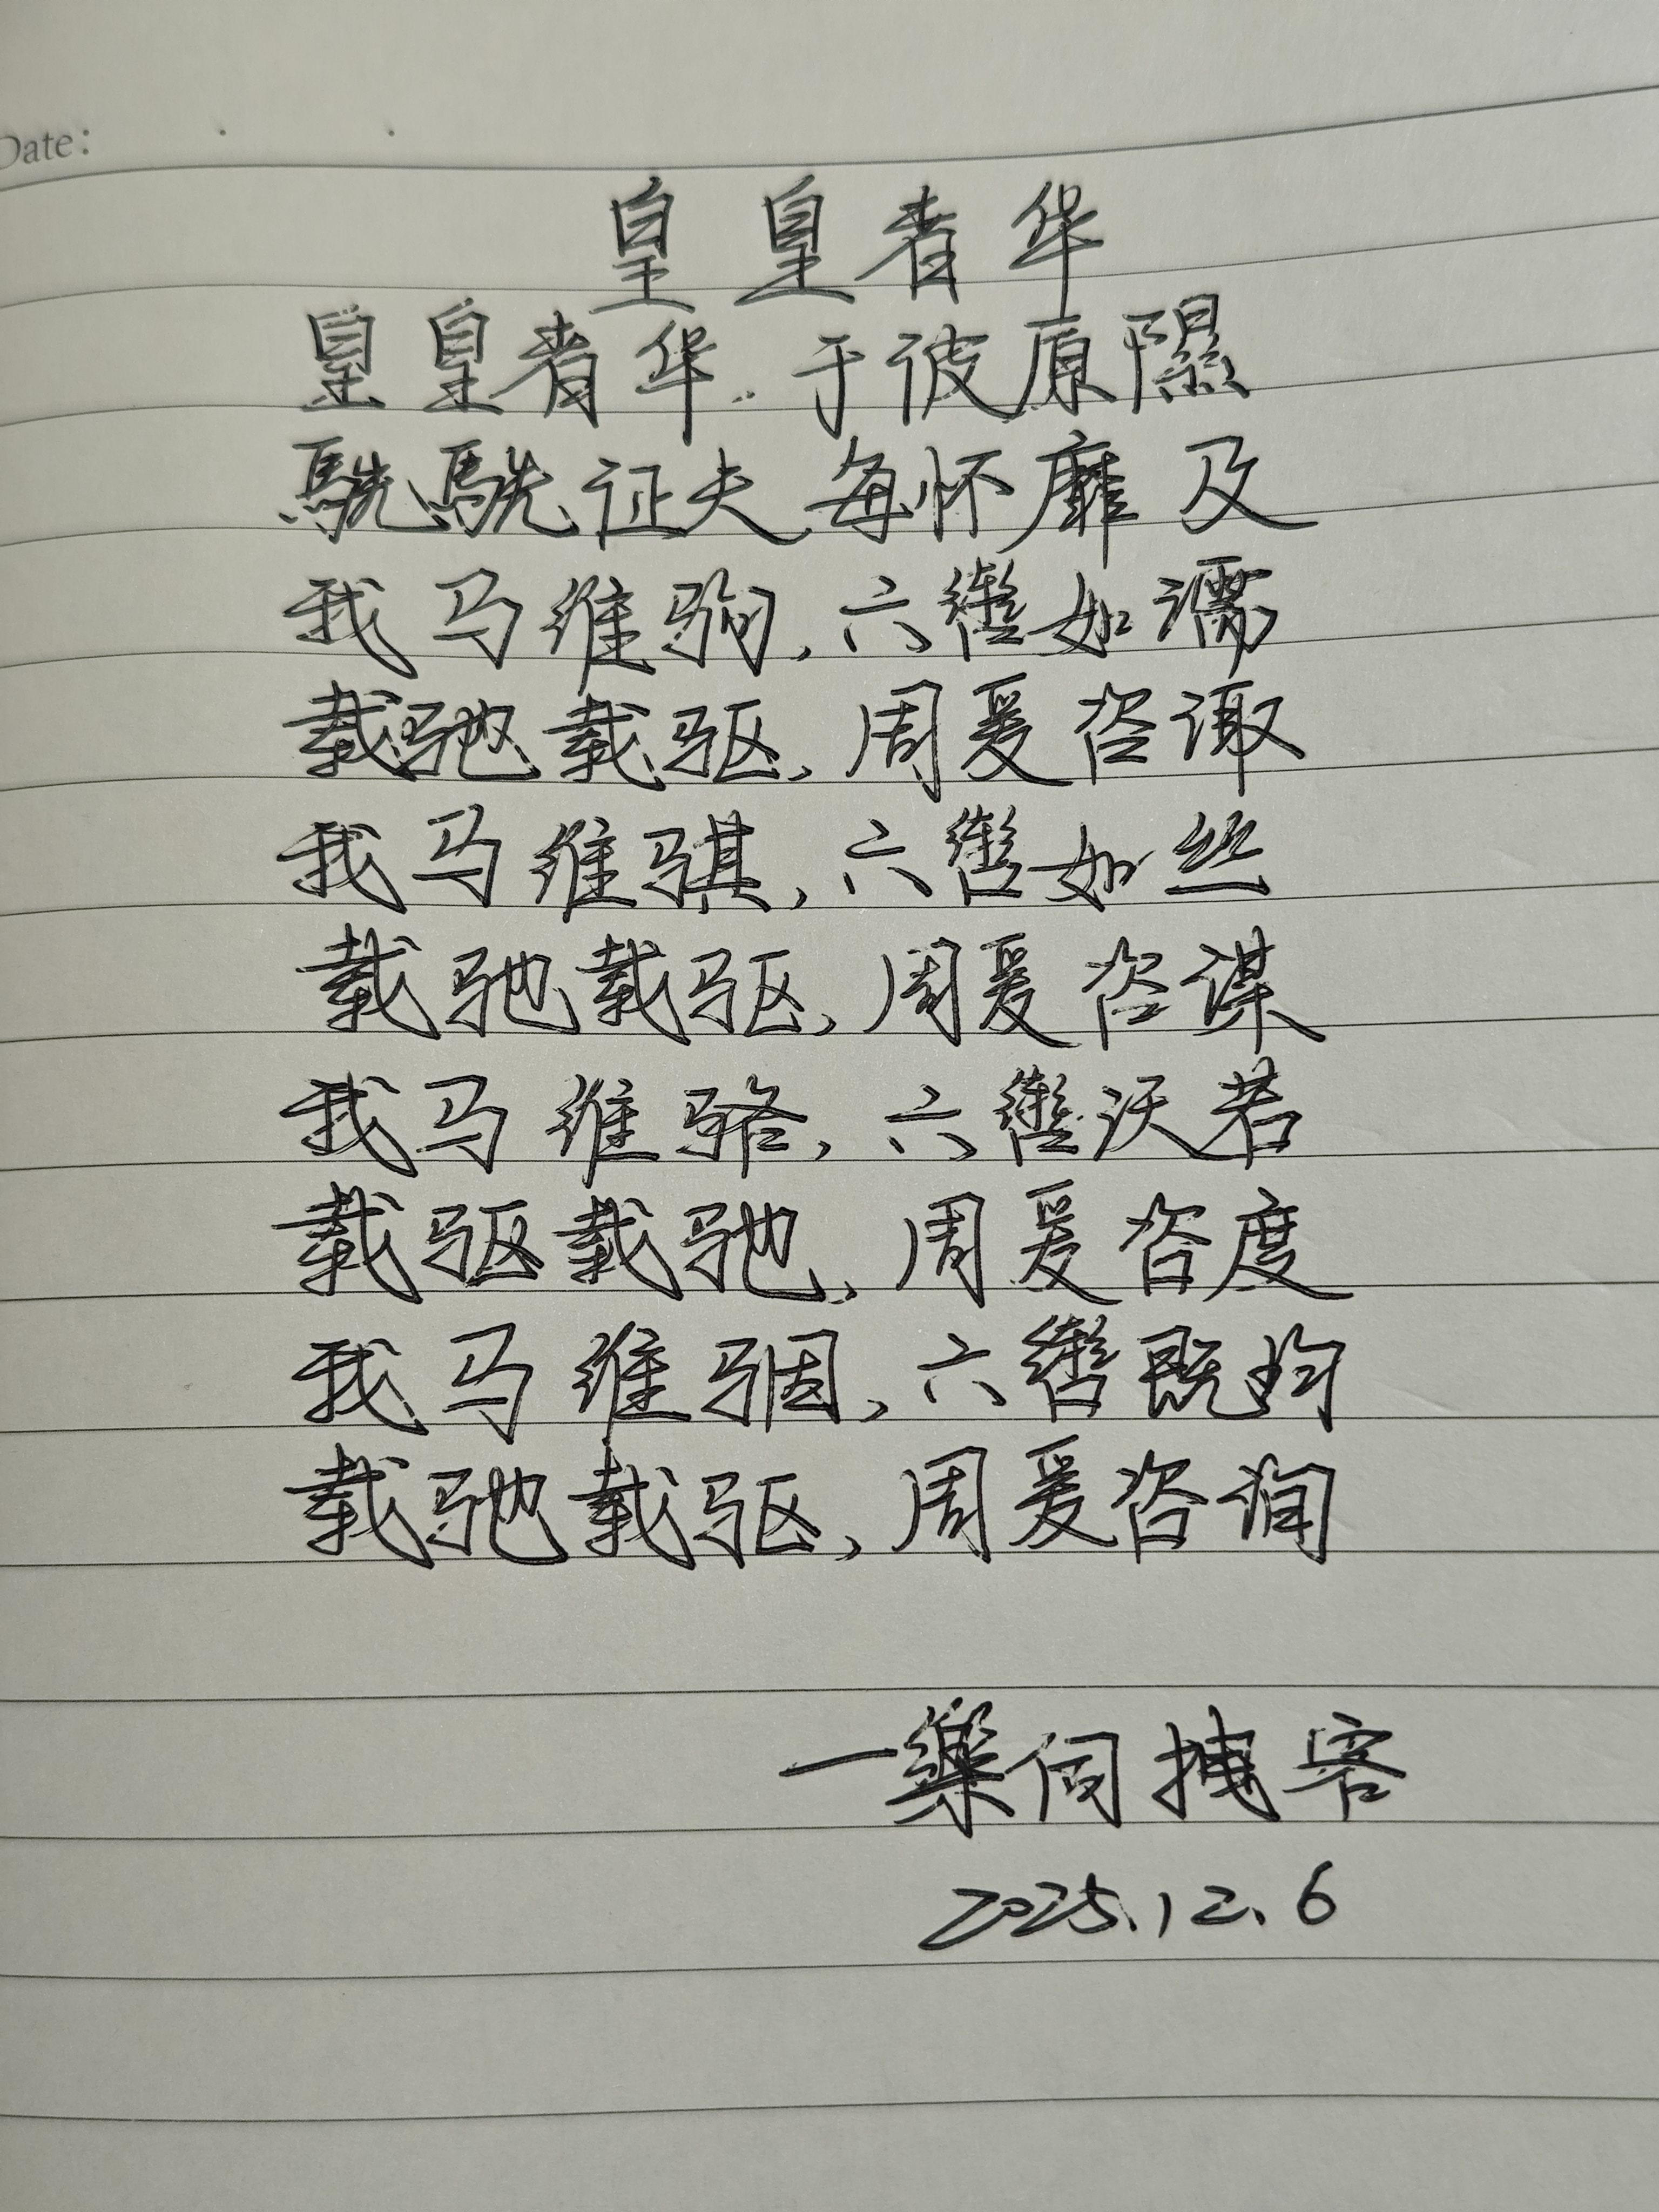 Date:
皇皇者华
皇皇者华.于彼原隰
駪駪征夫,每怀靡及
我马维驹,六辔如濡
载驰载驱,周爰咨诹
我马维骐,六辔如丝
载驰载驱,周爰咨谋
我马维骆,六辔沃若
载驱载驰,周爰咨度
我马维骃,六辔既均
载驰载驱,周爰咨询
一乐伺拽客
2025.12.6